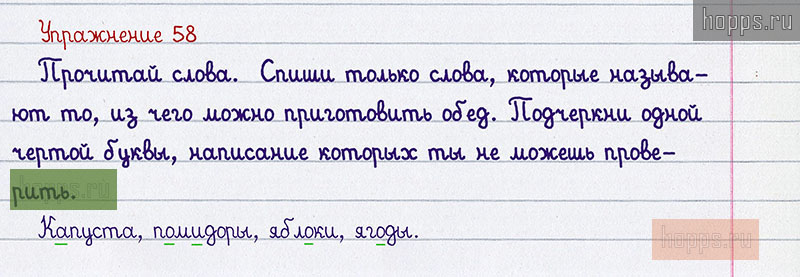 hopps.ru
Упражнение 58
Прочитай слова. Спиши только слова, которые называ-
ют то, из чего можно приготовить обед. Подчеркни одной
чертой буквы, написание которых ты не можешь прове-
рить.
hopps.ru
Капуста, помидоры, яблоки, ягоды.
hopps.ru